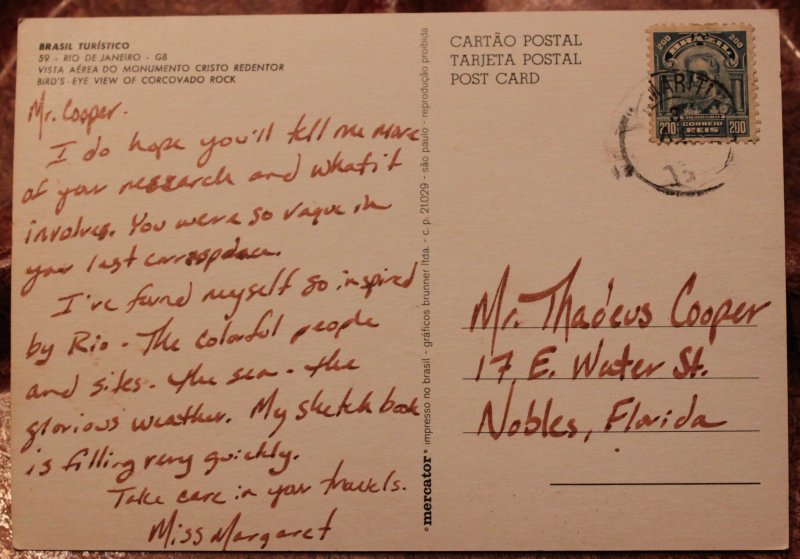 BRASIL TURÍSTICO
59 - RIO DE JANEIRO - GB
VISTA AÉREA DO MONUMENTO CRISTO REDENTOR
BIRD'S-EYE VIEW OF CORCOVADO ROCK
Mr. Cooper.
I do hope you'll tell me more
of your research and what it
involves. You were so vague in
your last correspdence.
I've found myself so inspired
by Rio - The colorful people
and sites - the sea - the
glorious weather. My sketch book
is filling very quickly.
Take care in your travels.
Miss Margaret
*mercator* impresso no brasil - gráficos brunner ltda. - c. p. 21.029 - são paulo - reprodução proibida
CARTÃO POSTAL
TARJETA POSTAL
POST CARD
200 BRASIL 200
CORREIO
200 REIS 200
Mr. Thadeus Cooper
17 E. Water St.
Nobles, Florida